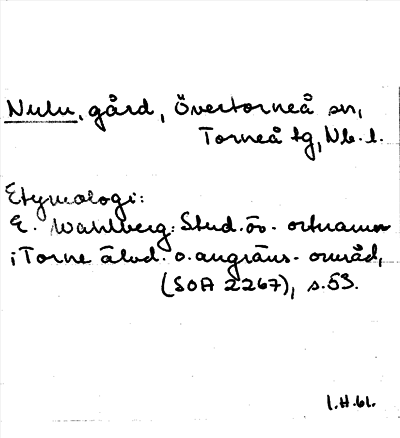 Nulu, gård, Övertorneå sn,
Torneå tg, Nb. l.
Etymologi:
E. Wahlberg: Stud. öv. ortnamn
i Torne älvd. o. angräns. område,
(SOA 2267), s. 53.
I.H.61.